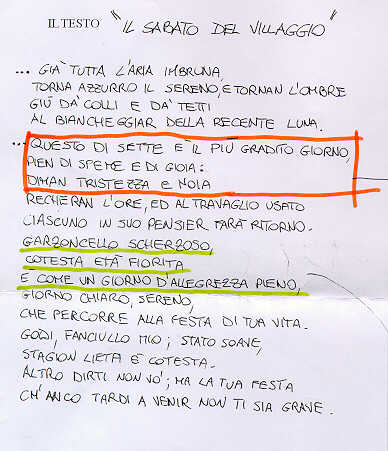 IL TESTO "IL SABATO DEL VILLAGGIO"
... GIÀ TUTTA L'ARIA IMBRUNA,
TORNA AZZURRO IL SERENO, E TORNAN L'OMBRE
GIÙ DA' COLLI E DA' TETTI
AL BIANCHEGGIAR DELLA RECENTE LUNA.
... QUESTO DI SETTE È IL PIÙ GRADITO GIORNO,
PIEN DI SPEME E DI GIOIA:
DIMAN TRISTEZZA E NOIA
RECHERAN L'ORE, ED AL TRAVAGLIO USATO
CIASCUNO IN SUO PENSIER FARÀ RITORNO.
GARZONCELLO SCHERZOSO,
COTESTA ETÀ FIORITA
È COME UN GIORNO D'ALLEGREZZA PIENO,
GIORNO CHIARO, SERENO,
CHE PERCORRE ALLA FESTA DI TUA VITA.
GODI, FANCIULLO MIO; STATO SOAVE,
STAGION LIETA È COTESTA.
ALTRO DIRTI NON VO'; MA LA TUA FESTA
CH'ANCO TARDI A VENIR NON TI SIA GRAVE.